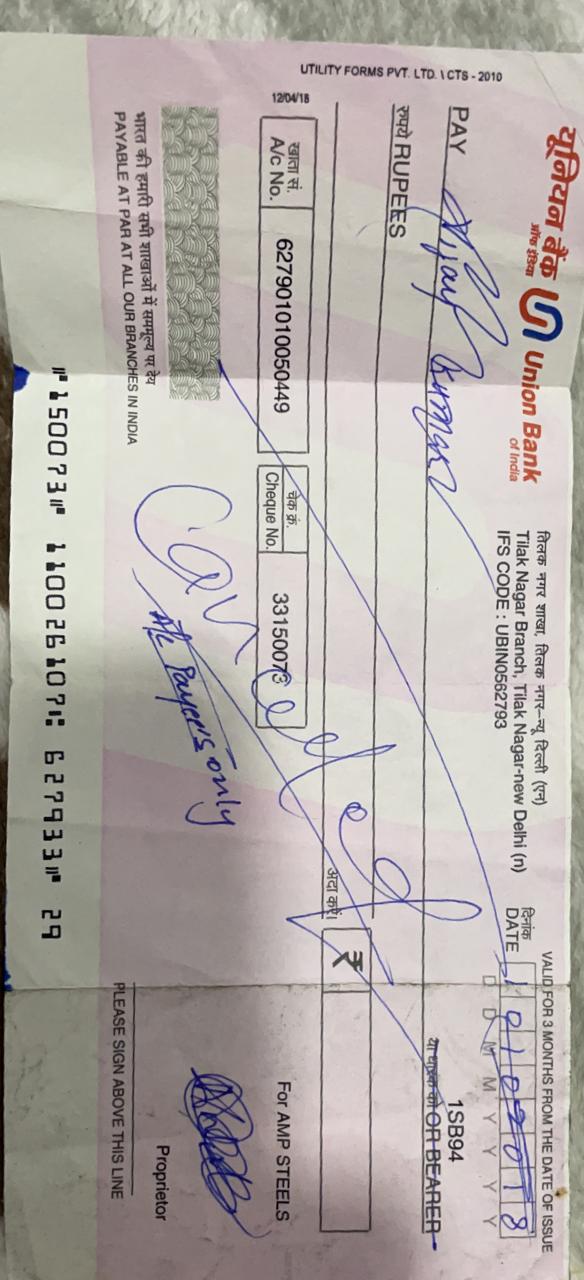 यूनियन बैंक
ऑफ इंडिया
Union Bank
of India
तिलक नगर शाखा, तिलक नगर–न्यू दिल्ली (एन)
Tilak Nagar Branch, Tilak Nagar-new Delhi (n)
IFS CODE : UBIN0562793
VALID FOR 3 MONTHS FROM THE DATE OF ISSUE
दिनांक
DATE
D D M M Y Y Y Y
PAY Vijay Kumar
1SB94
या धारक को OR BEARER
रुपये RUPEES
अदा करें।
₹
UTILITY FORMS PVT. LTD. \ CTS - 2010
12/04/18
खाता सं.
A/c No.
627901010050449
चेक क्रं.
Cheque No.
33150073
Cancelled
A/c Payer's only
For AMP STEELS
Proprietor
PLEASE SIGN ABOVE THIS LINE
भारत की हमारी सभी शाखाओं में सममूल्य पर देय
PAYABLE AT PAR AT ALL OUR BRANCHES IN INDIA
⑈150073⑈ 110026107⑆ 627933⑈ 29